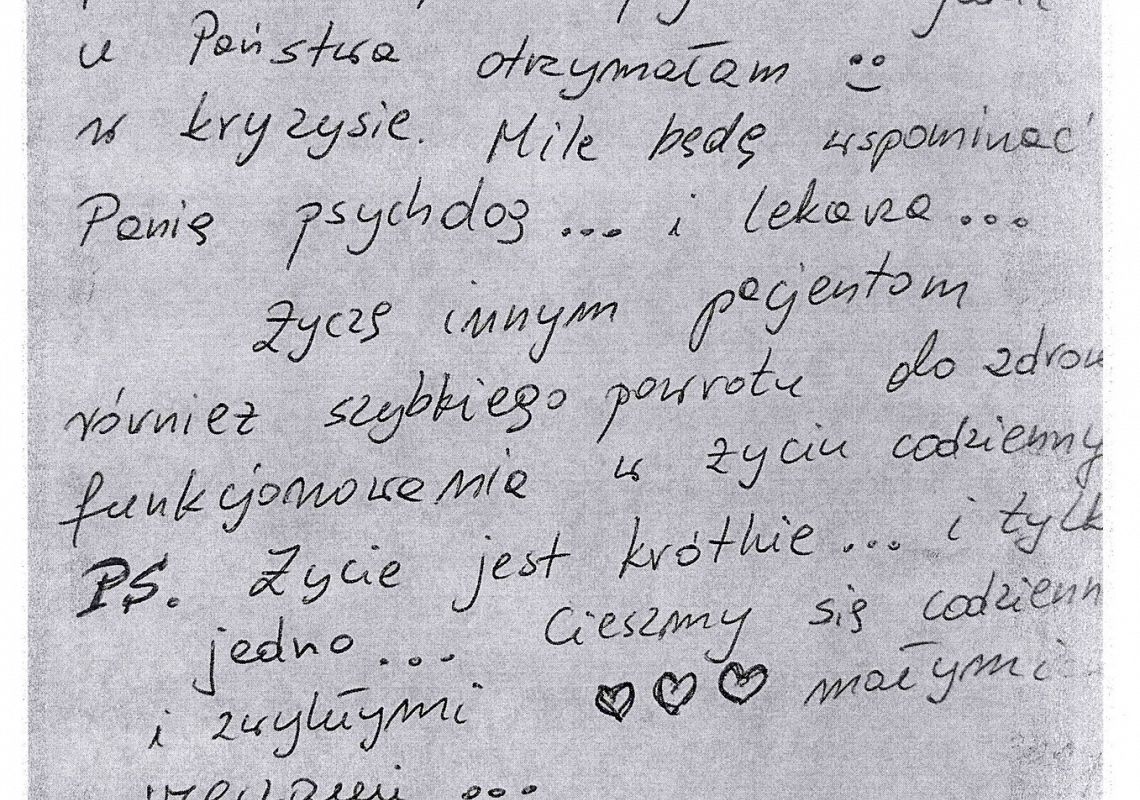 u Państwa otrzymałam
w kryzysie. Mile będę wspominać
Panią psycholog ... i lekarza ...
Życzę innym pacjentom
również szybkiego powrotu do zdrow
funkcjonowania w życiu codzienny
PS. Życie jest krótkie ... i tylk
jedno ... Cieszmy się codzienn
i zwykłymi ♡ ♡ ♡ małymi